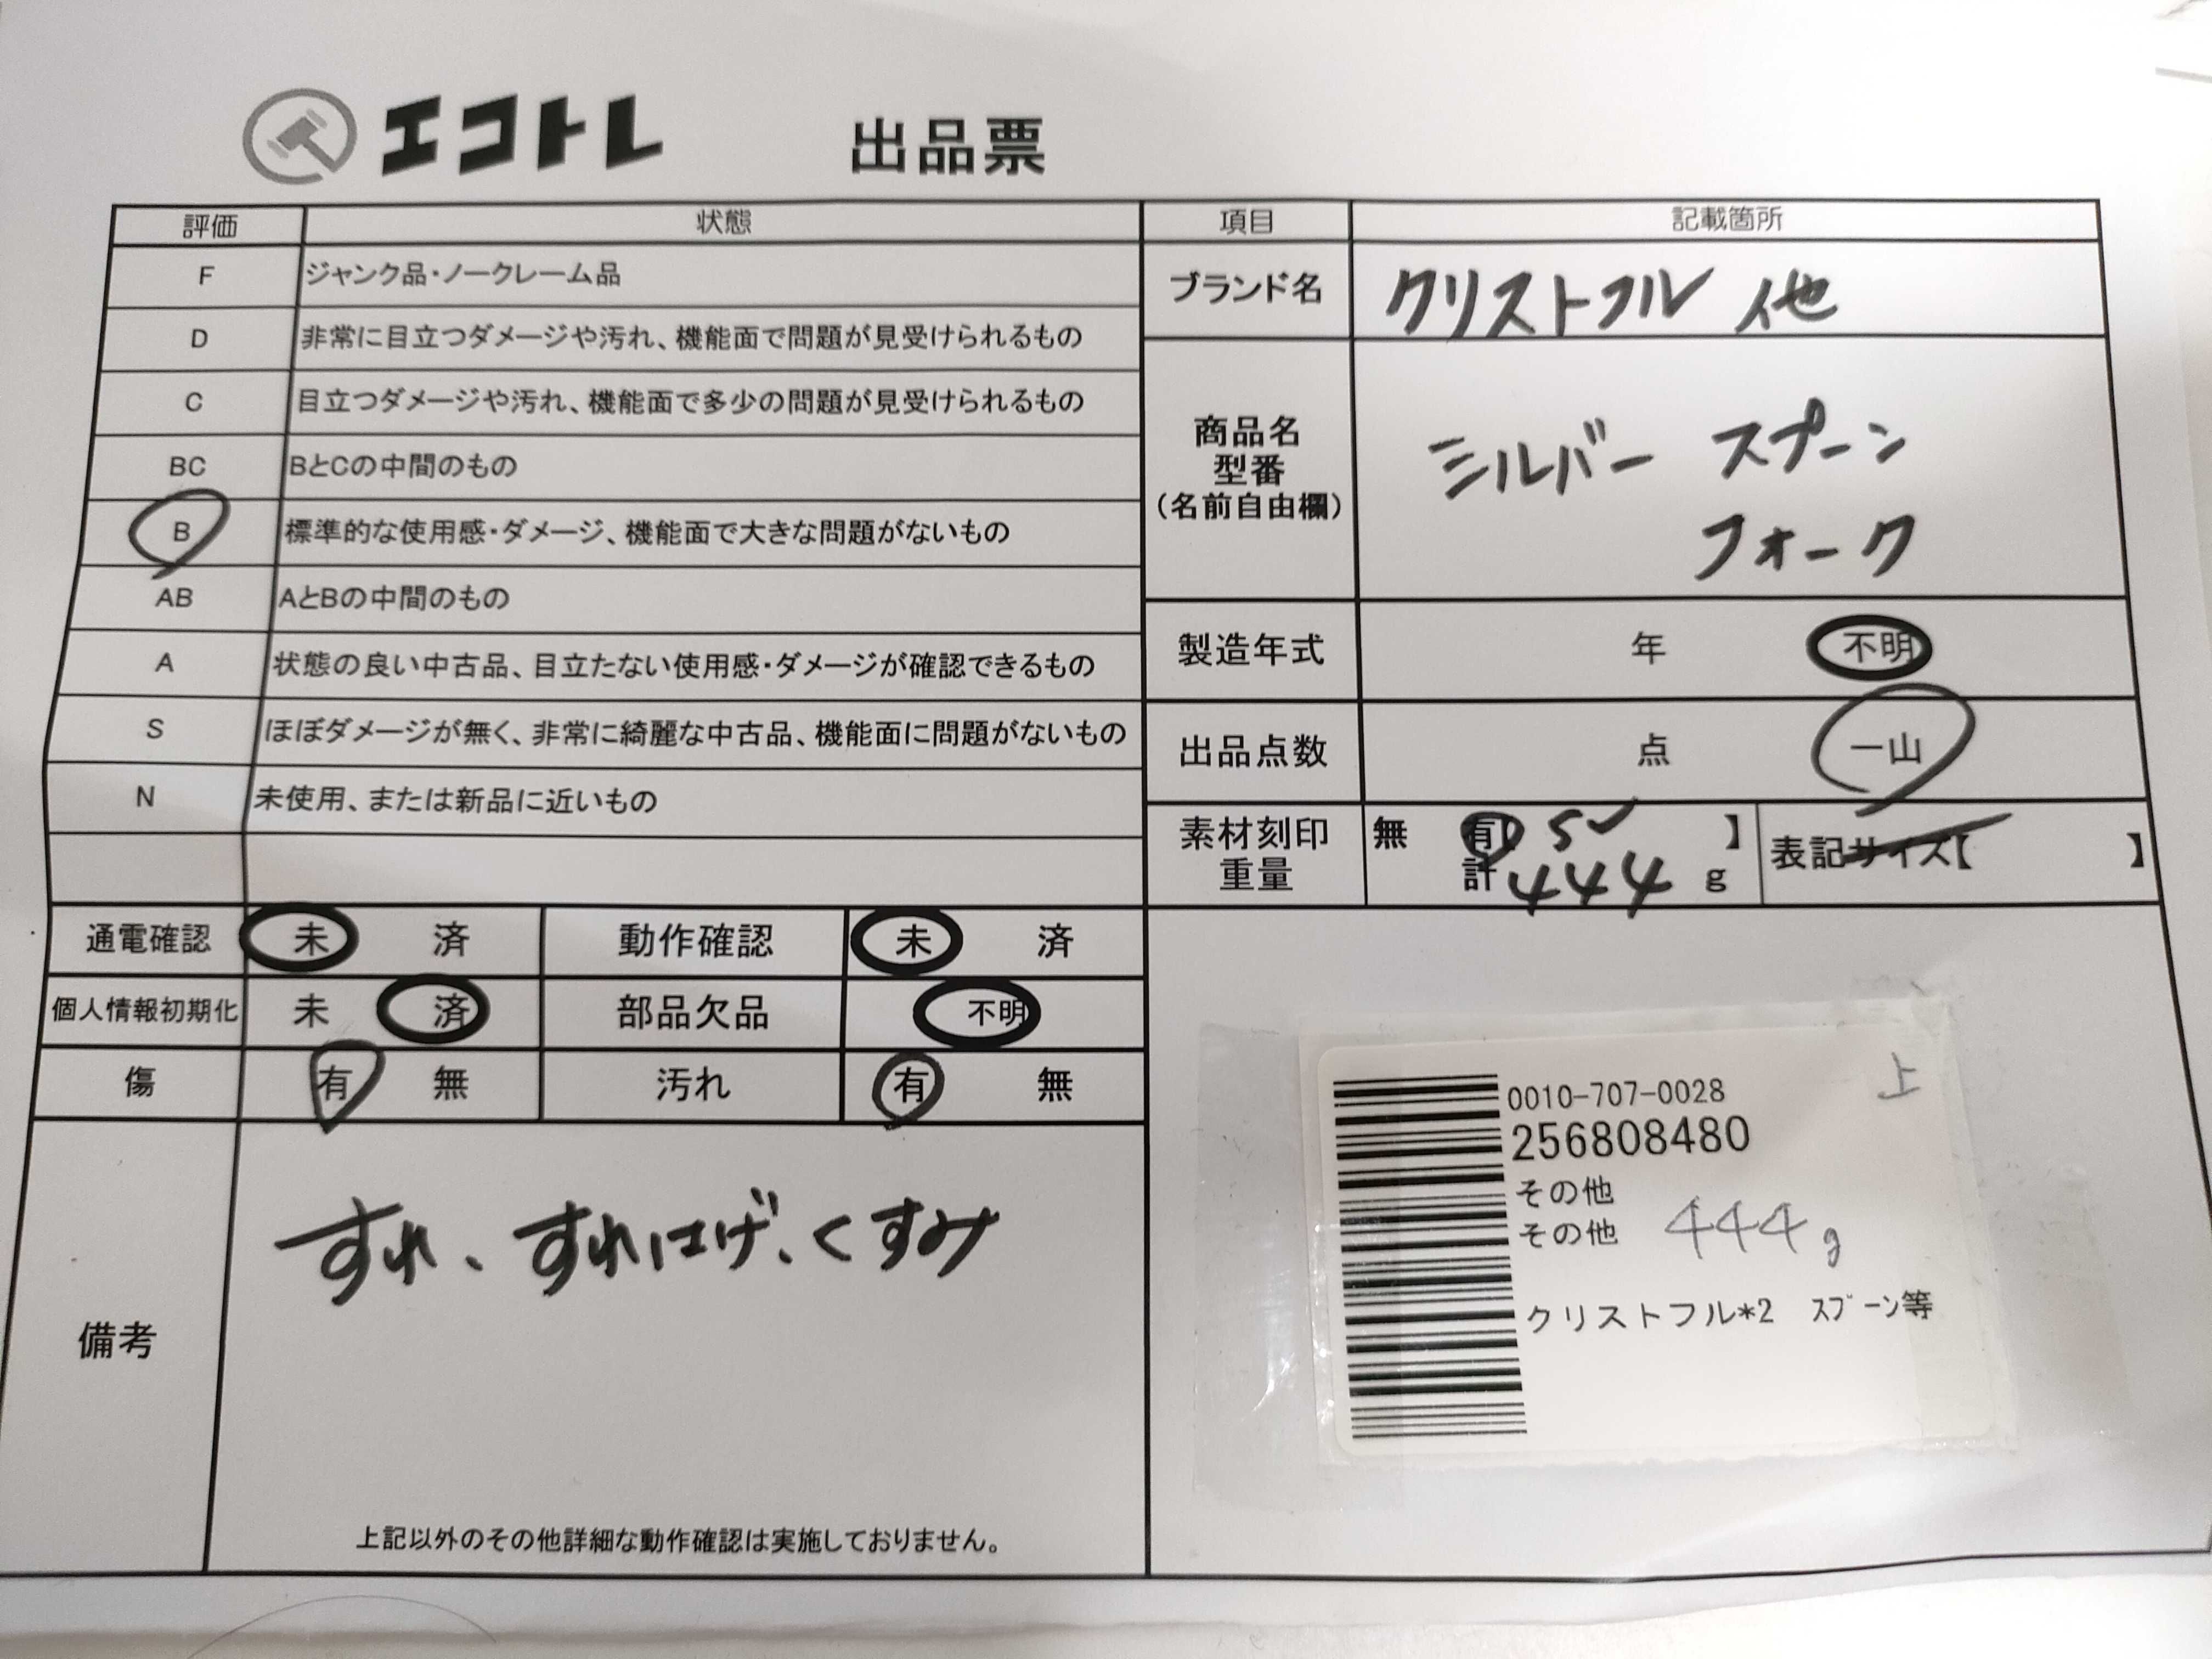 エコトレ 出品票
評価 状態 項目 記載箇所
F ジャンク品・ノークレーム品
D 非常に目立つダメージや汚れ、機能面で問題が見受けられるもの
C 目立つダメージや汚れ、機能面で多少の問題が見受けられるもの
BC BとCの中間のもの
B 標準的な使用感・ダメージ、機能面で大きな問題がないもの
AB AとBの中間のもの
A 状態の良い中古品、目立たない使用感・ダメージが確認できるもの
S ほぼダメージが無く、非常に綺麗な中古品、機能面に問題がないもの
N 未使用、または新品に近いもの
ブランド名 クリストフル 他
商品名
型番
(名前自由欄)
シルバー スプーン
フォーク
製造年式 年 不明
出品点数 点 一山
素材刻印 無 有【 S 】
重量 計 444 g
表記サイズ【 】
通電確認 未 済 動作確認 未 済
個人情報初期化 未 済 部品欠品 不明
傷 有 無 汚れ 有 無
備考
すれ、すれはげ、くすみ
上記以外のその他詳細な動作確認は実施しておりません。
上
0010-707-0028
256808480
その他
その他 444g
クリストフル*2 ｽﾌﾟｰﾝ等